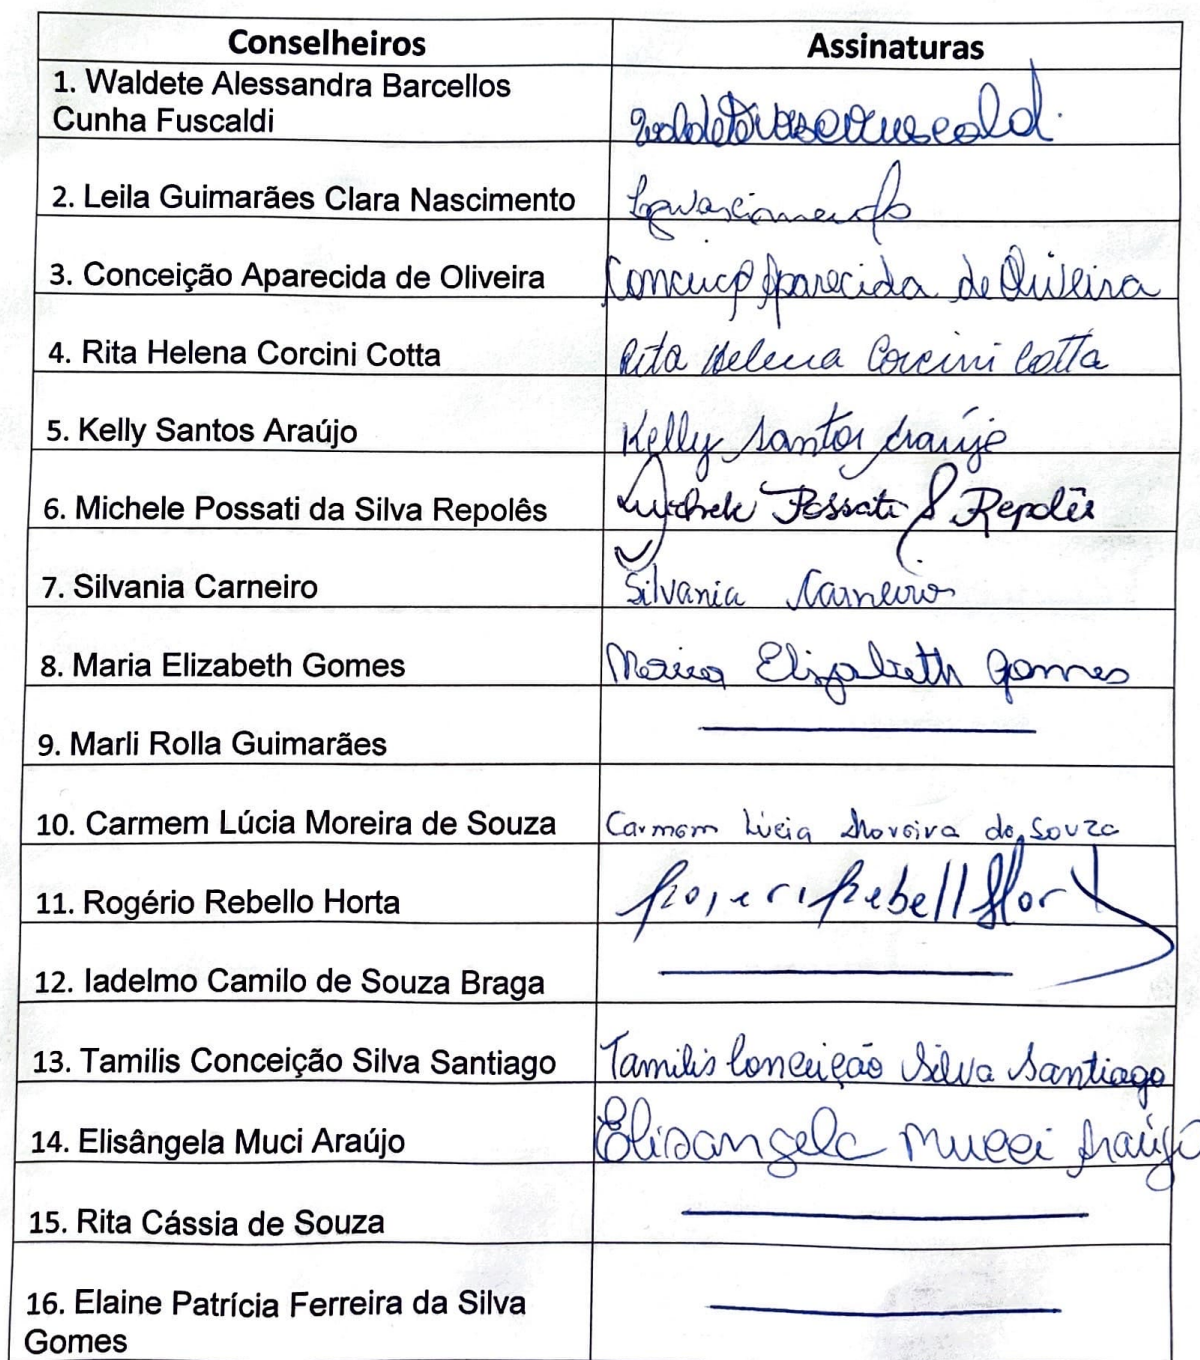 Conselheiros Assinaturas
1. Waldete Alessandra Barcellos
Cunha Fuscaldi
2. Leila Guimarães Clara Nascimento
3. Conceição Aparecida de Oliveira Aparecida de Oliveira
4. Rita Helena Corcini Cotta Rita Helena Corcini Cotta
5. Kelly Santos Araújo Kelly Santos Araújo
6. Michele Possati da Silva Repolês Possati Repolês
7. Silvania Carneiro Silvania Carneiro
8. Maria Elizabeth Gomes Maria Elizabeth Gomes
9. Marli Rolla Guimarães
10. Carmem Lúcia Moreira de Souza Carmem Lúcia Moreira de Souza
11. Rogério Rebello Horta
12. Iadelmo Camilo de Souza Braga
13. Tamilis Conceição Silva Santiago Tamilis Conceição Silva Santiago
14. Elisângela Muci Araújo Elisangela Mucci Araújo
15. Rita Cássia de Souza
16. Elaine Patrícia Ferreira da Silva
Gomes